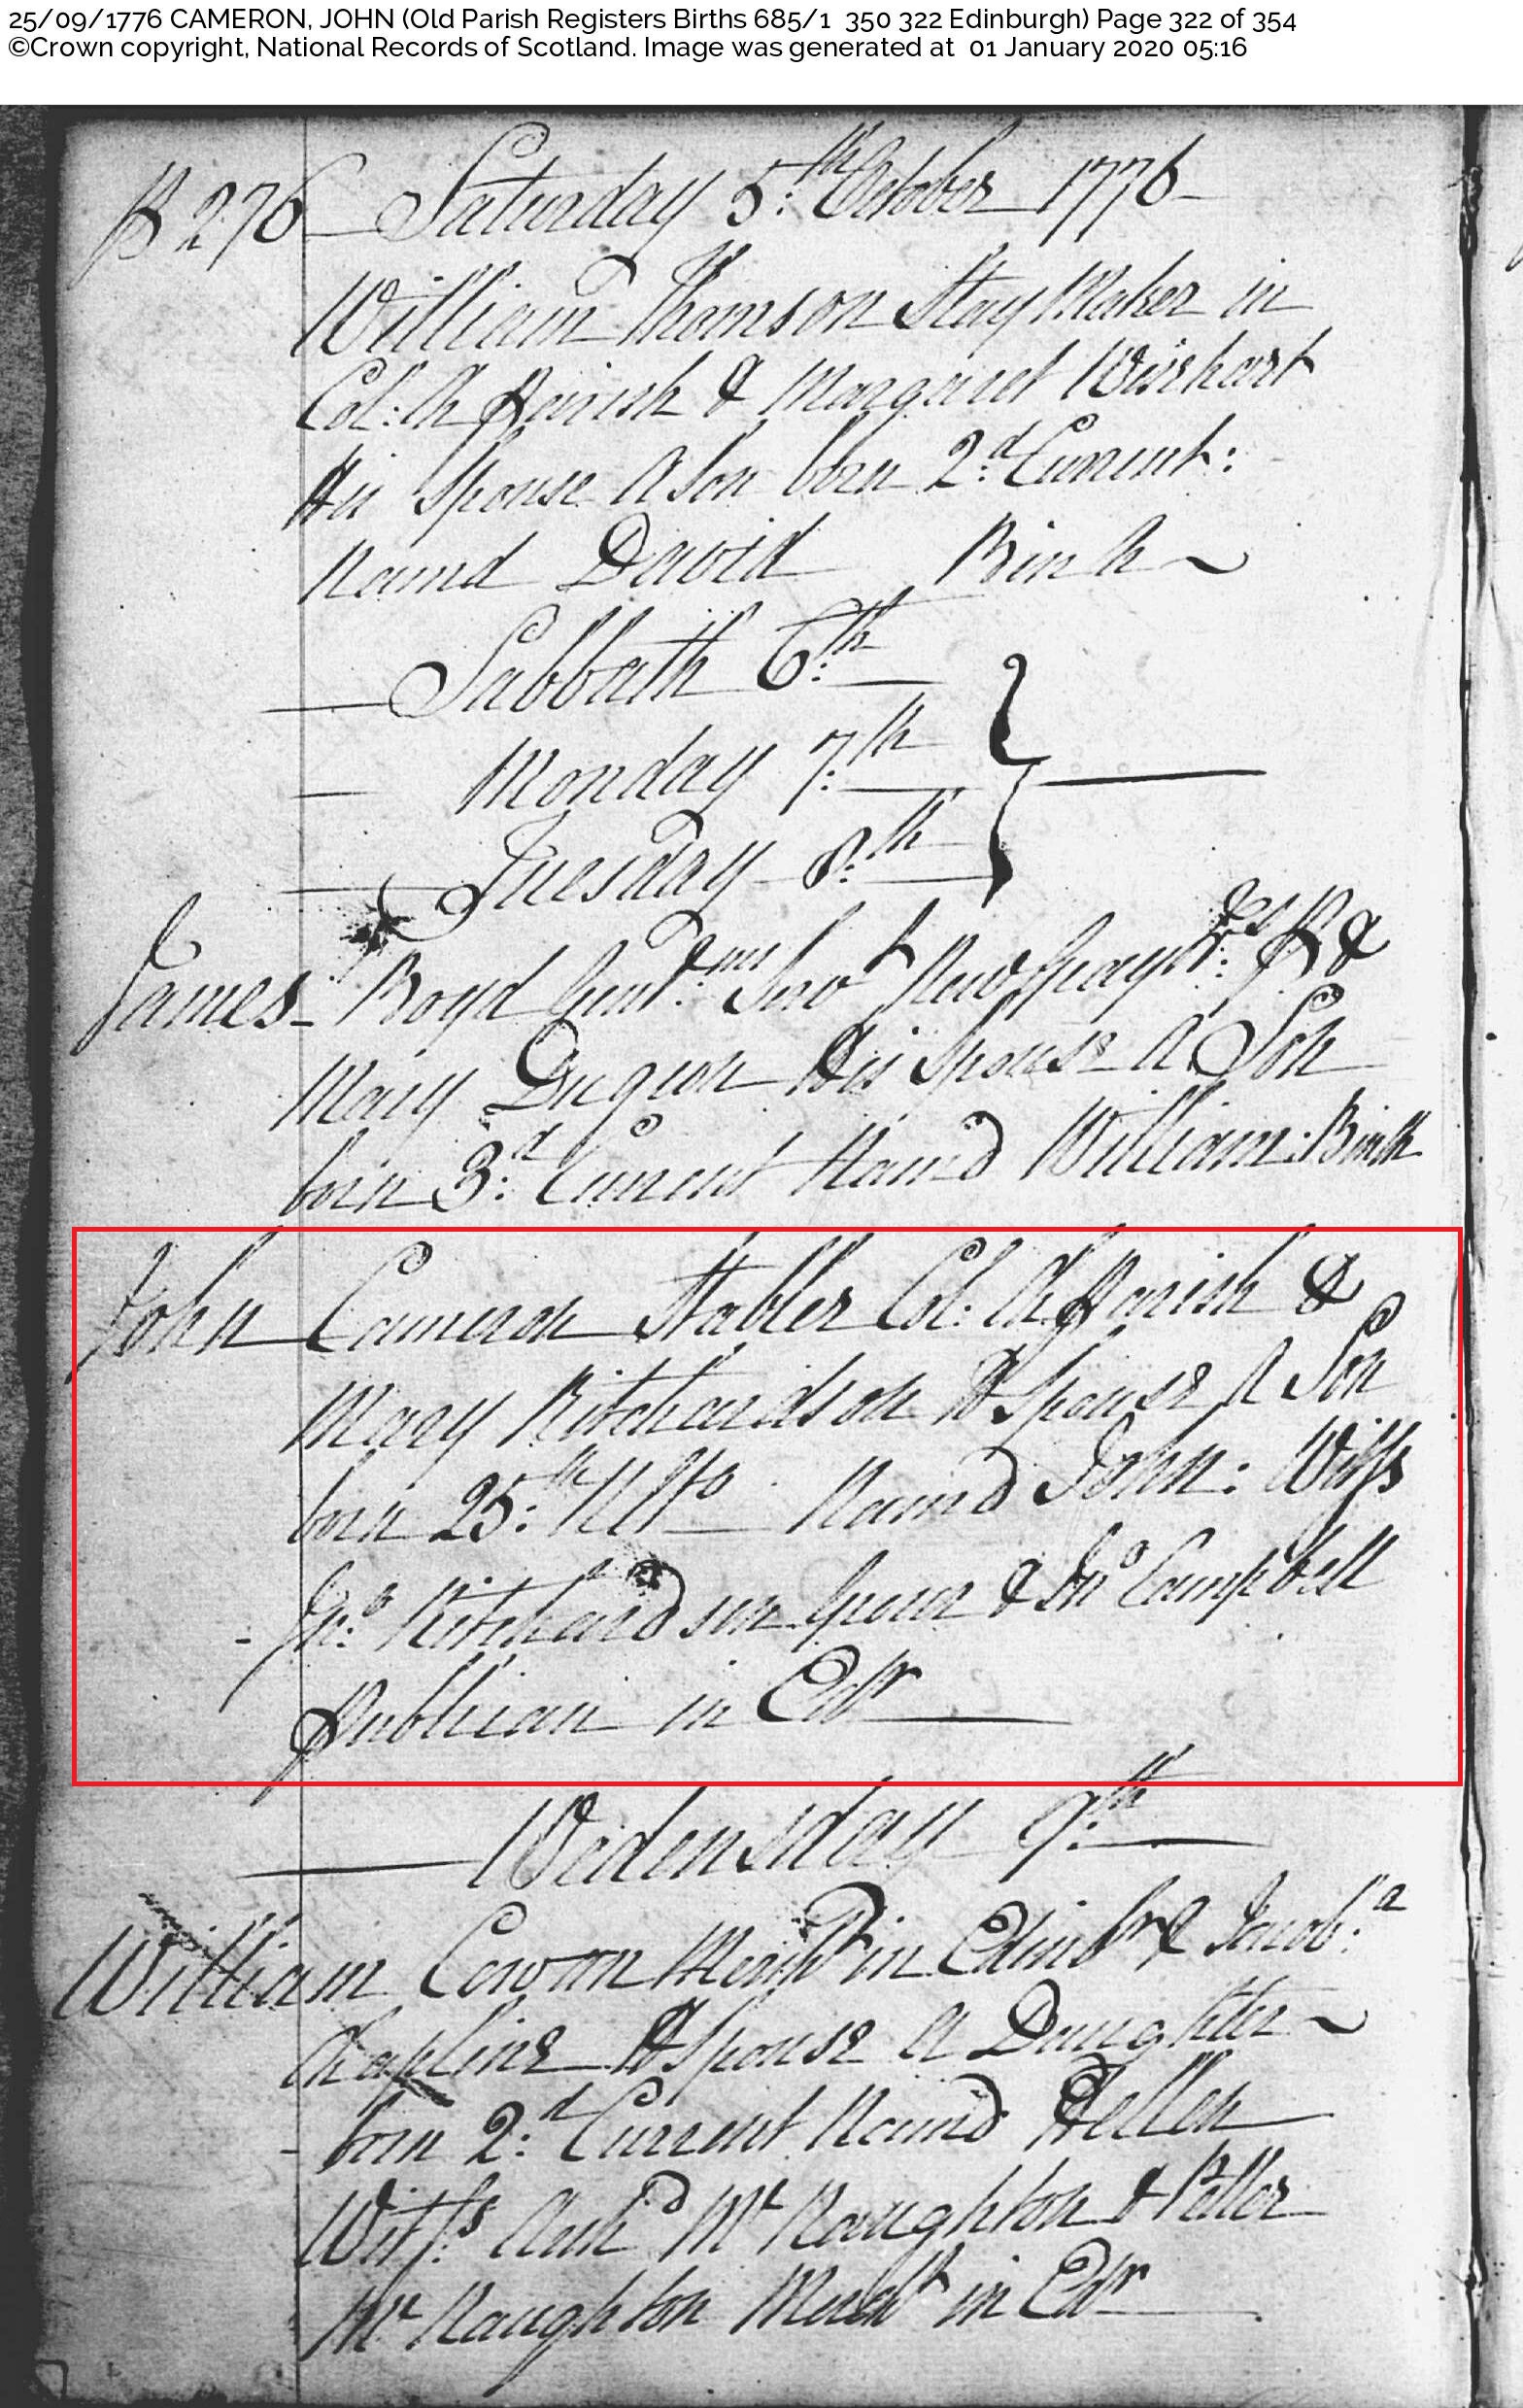 25/09/1776 CAMERON, JOHN (Old Parish Registers Births 685/1 350 322 Edinburgh) Page 322 of 354
©Crown copyright, National Records of Scotland. Image was generated at 01 January 2020 05:16
P 276 Saturday 5:th October 1776
William Thomson Stay Maker in
Col: Ch Parish & Margaret Wishart
His Spouse A Son born 2:d Current:
Namd David Birth
Sabbath 6:th
Monday 7:th
Tuesday 8:th
James Boyd Servt New Gray fr: P &
Mary Dugion His Spouse A Son
born 3:d Current Namd William: Birth
John Cameron Stabler Col: Ch Parish &
Mary Ritchardson H Spouse A Son
born 25:th Ulto Namd John: Witss
Jno: Ritchardson Grocer & Jno Campbell
Publican in Edr
Wedensday 9:th
William Cowan Mercht in Edinbr & Jacob:a
Chapline H Spouse A Daughter
born 2:d Current Namd Hellen
Witss Archd Mc Naughton & Petter
Mc Naughton Mercht in Edr